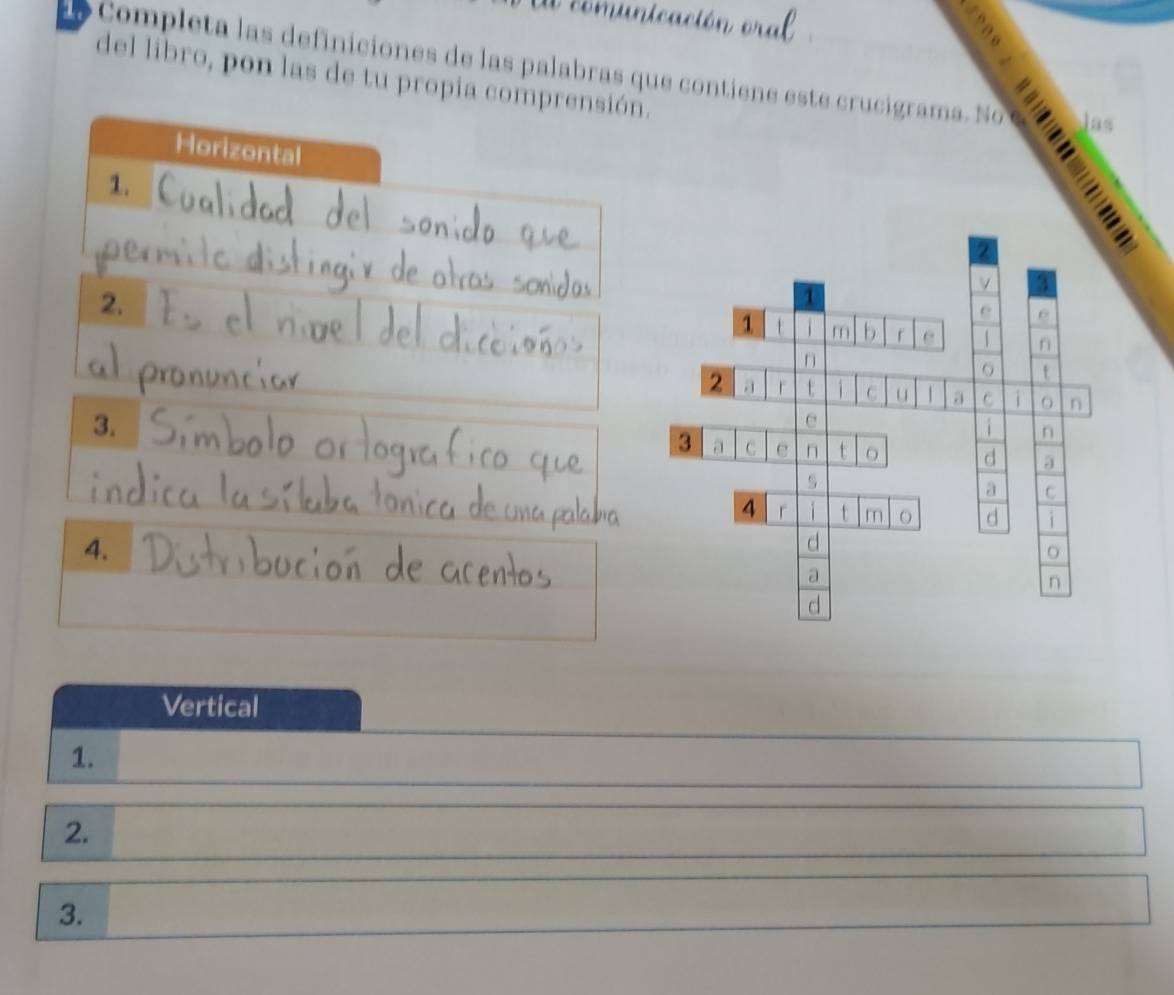 comunicación oral
1. Completa las definiciones de las palabras que contiene este crucigrama. No las
del libro, pon las de tu propia comprensión.
Horizontal
1. Cualidad del sonido que
permite distingir de otros sonidos
2. Es el nivel del diccionos
al pronunciar
3. Símbolo ortografico que
indica la sílaba tonica de una palabra
4. Distribucion de acentos
Vertical
1.
2.
3.
2
v 3
1 e e
1 t i m b r e l n
n o t
2 a r t i c u l a c i o n
e i n
3 a c e n t o d a
s a c
4 r i t m o d i
d o
a n
d